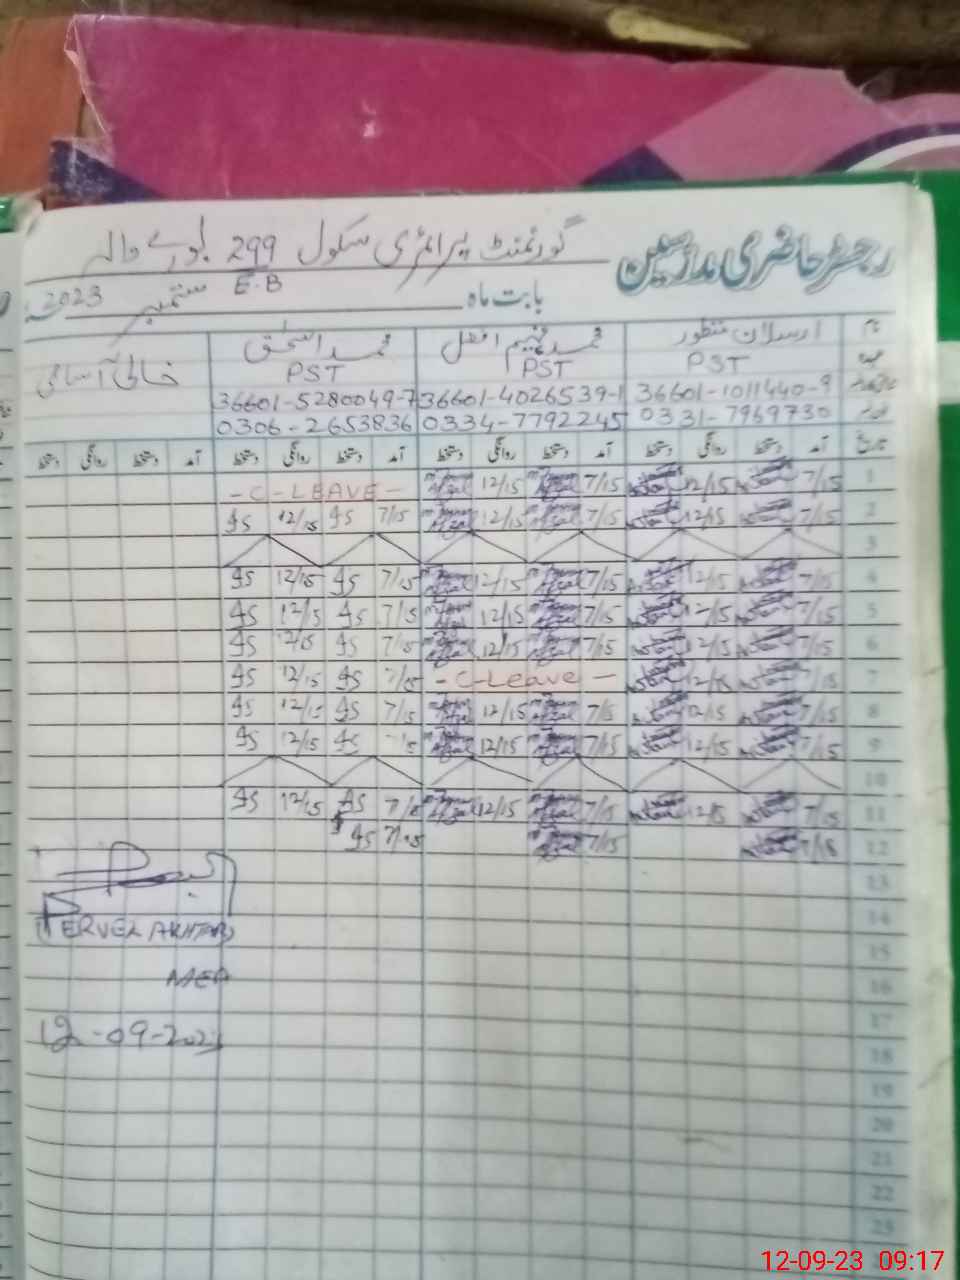 رجسٹر حاضری مدارسین
گورنمنٹ پرائمری سکول 299 بورے والہ
E.B
بابت ماہ ستمبر 2023ء
نام ارسلان منظور محمد فہیم افضل محمد اسحٰق خالی آسامی
عہدہ PST PST PST
36601-1011440-9 36601-4026539-1 36601-5280049-7
0331-7969730 0334-7792245 0306-2653836
تاریخ آمد دستخط روانگی دستخط آمد دستخط روانگی دستخط آمد دستخط روانگی دستخط آمد دستخط روانگی دستخط
1 7/15 12/15 7/15 12/15 -C-LEAVE-
2 7/15 12/15 7/15 12/15 7/15 12/15
3
4 7/15 12/15 7/15 12/15 7/15 12/15
5 7/15 12/15 7/15 12/15 7/15 12/15
6 7/15 12/15 7/15 12/15 7/15 12/15
7 7/15 12/15 -C-Leave- 7/15 12/15
8 7/15 12/15 7/15 12/15 7/15 12/15
9 7/15 12/15 7/15 12/15 12/15
10
11 7/15 12/15 7/15 12/15 12/15
12 7/15 7/15 7/15
13
14
15
16
17
18
19
20
21
22
23
PERVEZ AKHTAR
MEA
12-09-2023
12-09-23 09:17